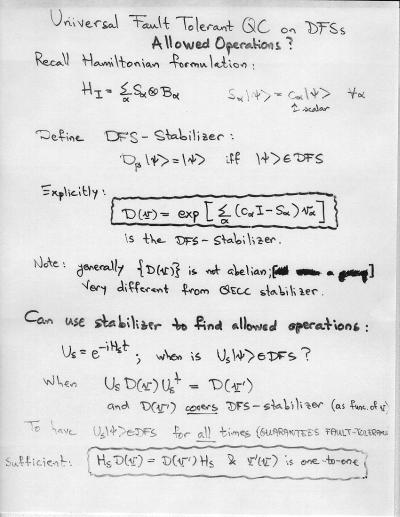 Universal Fault Tolerant QC on DFSs
Allowed Operations?
Recall Hamiltonian formulation:
H_I = Σ_α S_α ⊗ B_α    S_α|ψ> = c_α|ψ>  ∀α
↑ scalar
Define DFS-Stabilizer:
D_β|ψ> = |ψ>  iff  |ψ> ∈ DFS
Explicitly:
D(v) = exp [ Σ_α (c_α I - S_α) v_α ]
is the DFS-Stabilizer.
Note: generally {D(v)} is not abelian;
Very different from QECC stabilizer.
Can use stabilizer to find allowed operations:
U_s = e^{-iH_s t} ; when is U_s|ψ> ∈ DFS?
When  U_s D(v) U_s^† = D(v')
and D(v') covers DFS-stabilizer (as func. of v)
To have U_s|ψ> ∈ DFS for all times (GUARANTEES FAULT-TOLERANC
Sufficient: H_s D(v) = D(v') H_s & v'(v) is one-to-one